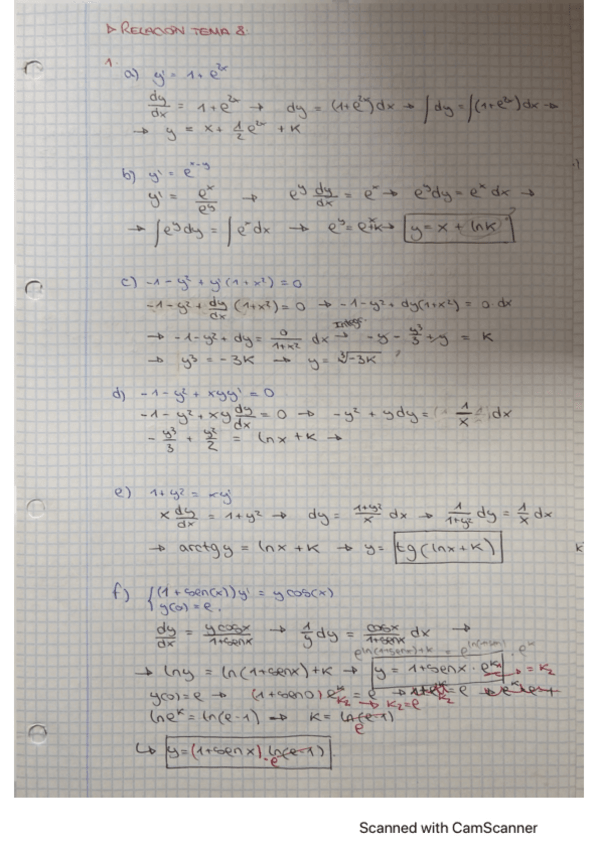 ▷ RELACIÓN TEMA 8.
1.
a) y' = 1 + e^{2x}
dy/dx = 1 + e^{2x} → dy = (1+e^{2x}) dx → ∫dy = ∫(1+e^{2x}) dx →
→ y = x + 1/2 e^{2x} + K
b) y' = e^{x-y}
y' = e^x/e^y → e^y dy/dx = e^x → e^y dy = e^x dx →
→ ∫e^y dy = ∫e^x dx → e^y = e^x + K → y = x + ln K ?
c) -1 - y² + y'(1+x²) = 0
-1 - y² + dy/dx (1+x²) = 0 → -1 - y² + dy(1+x²) = 0 · dx
→ -1 - y² + dy = 0/(1+x²) dx → Integr. -y - y³/3 + y = K
→ y³ = -3K → y = ∛(-3K) ?
d) -1 - y² + xyy' = 0
-1 - y² + xy dy/dx = 0 → -y² + y dy = ( 1/x ) dx
- y³/3 + y²/2 = ln x + K →
e) 1 + y² = xy'
x dy/dx = 1 + y² → dy = (1+y²)/x dx → 1/(1+y²) dy = 1/x dx
→ arctg y = ln x + K → y = tg(ln x + K)
f) { (1 + sen(x)) y' = y cos(x)
y(0) = e.
dy/dx = y cos x/(1+sen x) → 1/y dy = cos x/(1+sen x) dx →
→ ln y = ln(1+sen x) + K → y = 1+sen x · e^K = K₂
y(0) = e → (1+sen 0) e^K K₂ = e → K₂ = e
ln e^K = ln(e-1) → K = ln(e-1) e
↳ y = (1+sen x) · ln(e-1) · e
Scanned with CamScanner